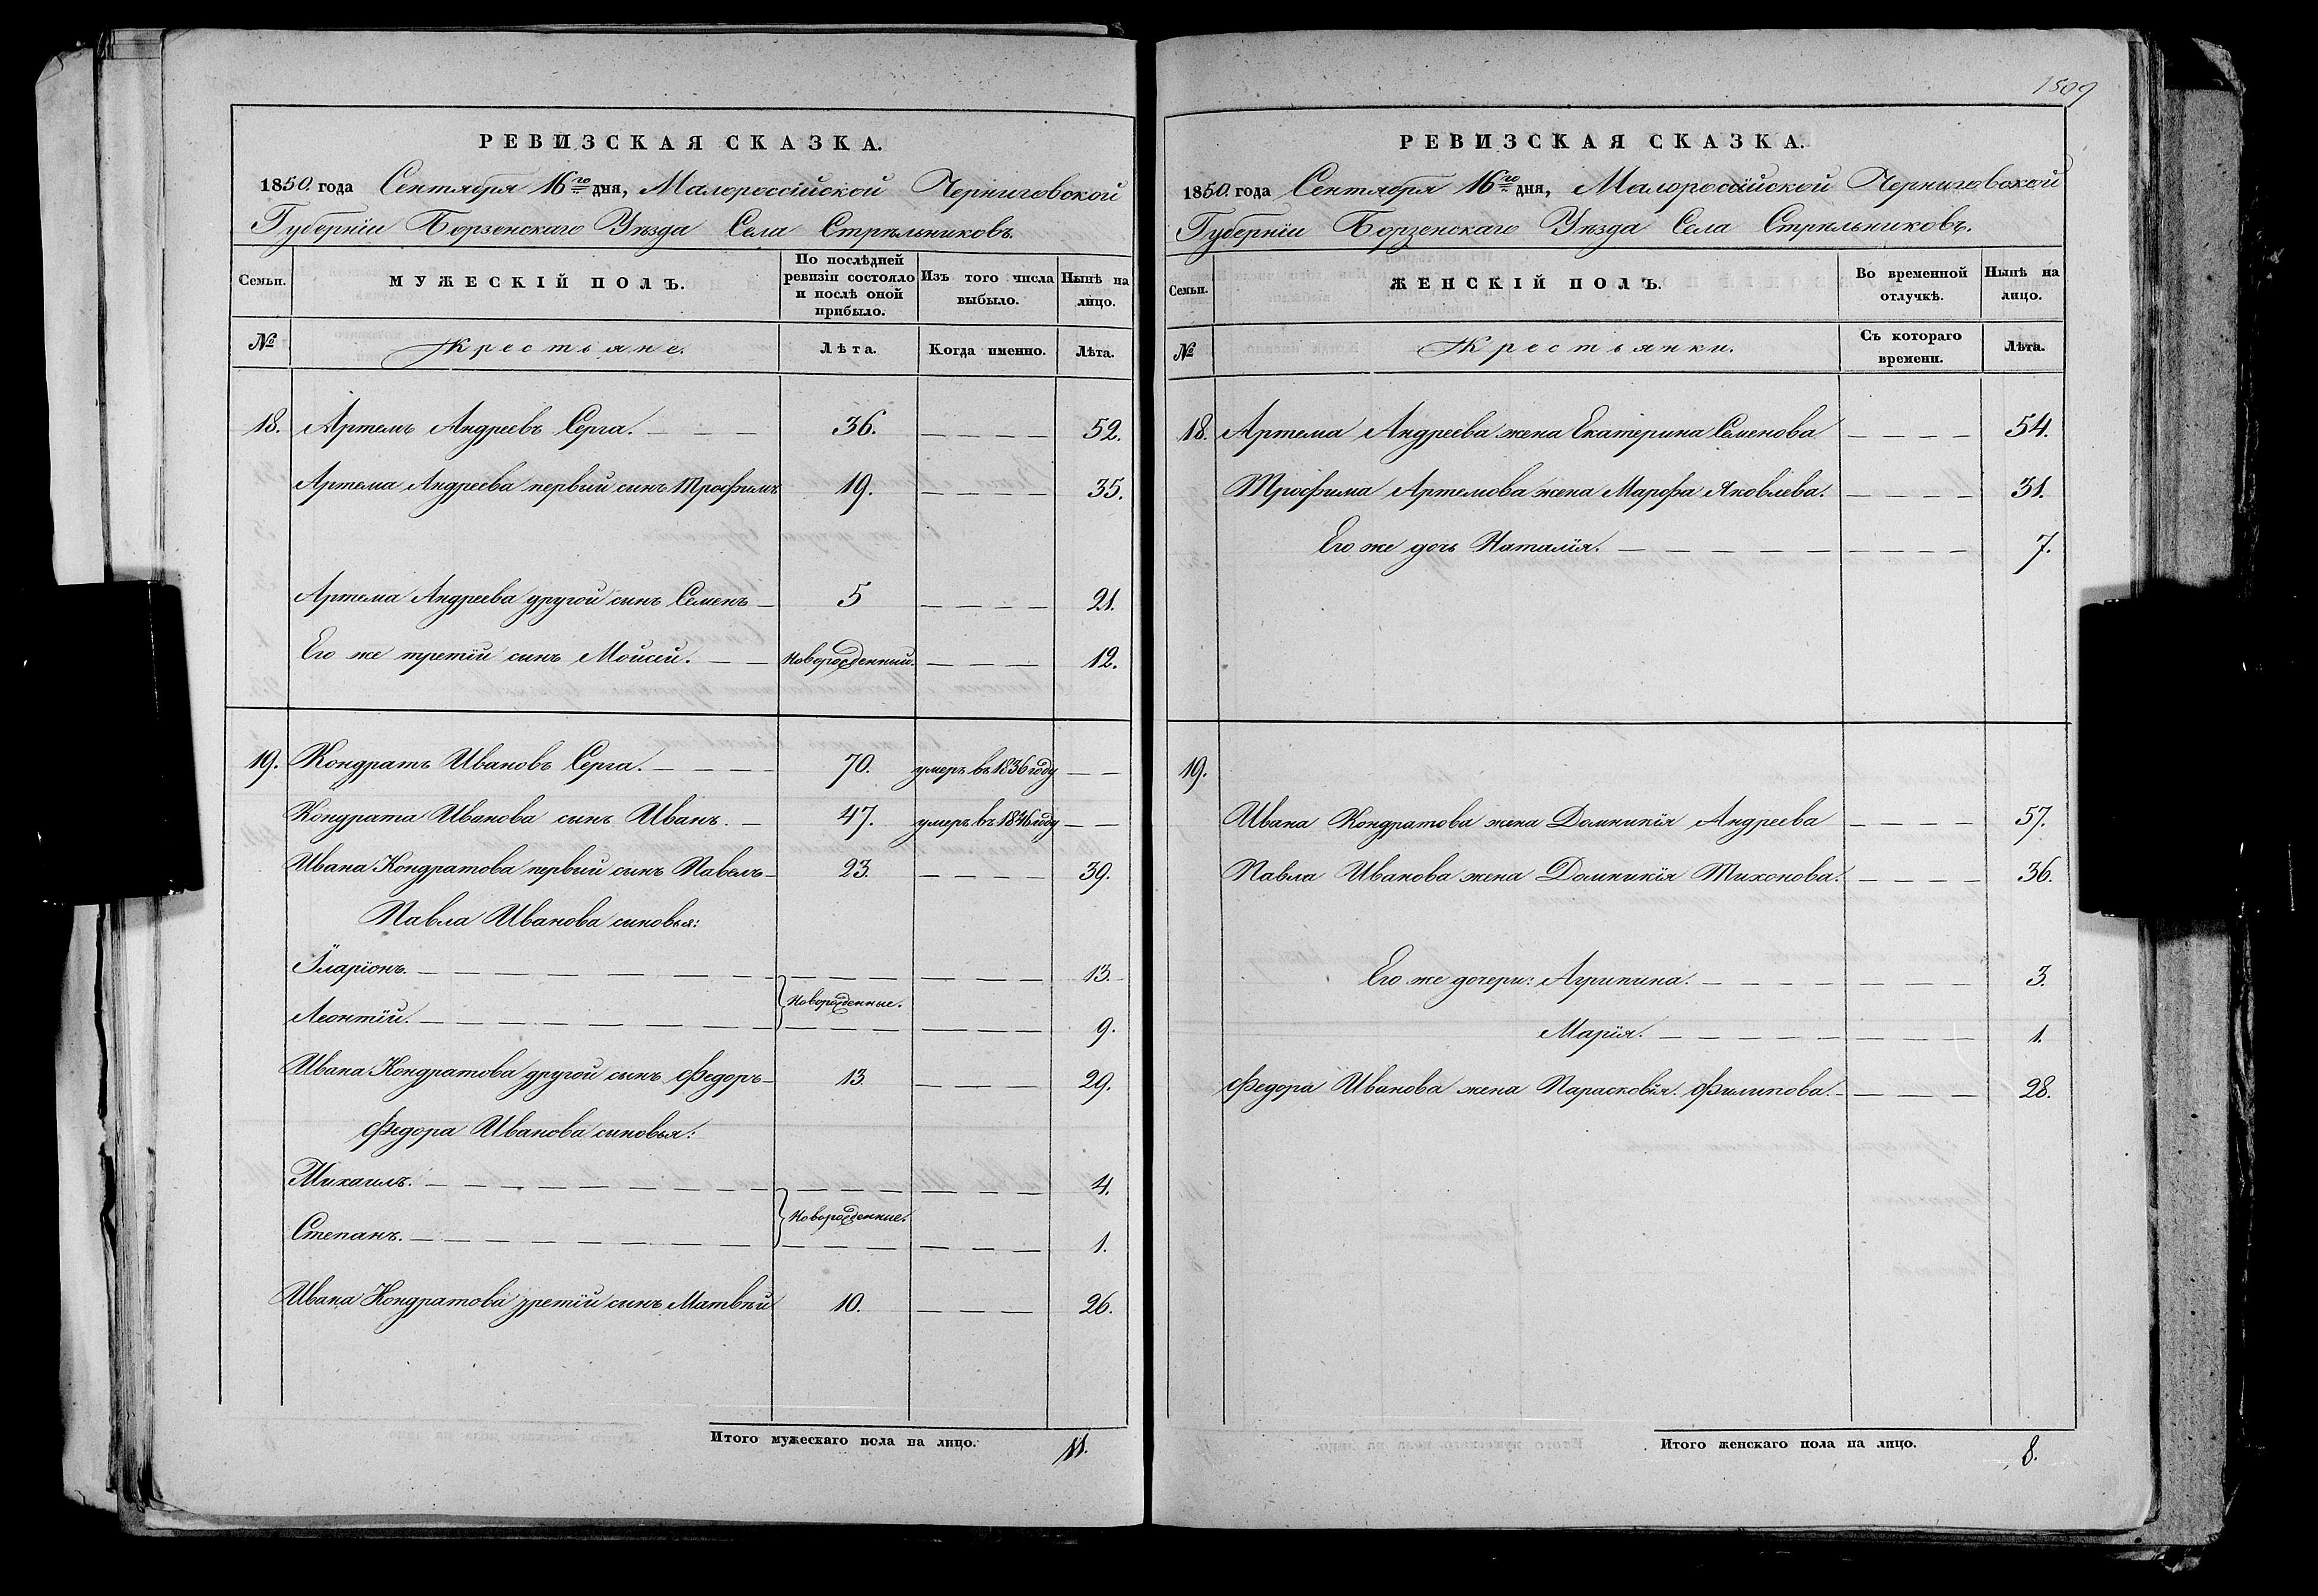 РЕВИЗСКАЯ СКАЗКА.
1850. года Сентября 16го дня, Малороссійской Черниговской
Губерніи Борзенскаго Уѣзда Села Стрѣльниковъ.
Семьи.
МУЖЕСКІЙ ПОЛЪ.
По послѣдней
ревизіи состояло
и послѣ оной
прибыло.
Изъ того числа
выбыло.
Нынѣ на
лицо.
№
Крестьяне.
Лѣта.
Когда именно.
Лѣта.
18. Артемъ Андреевъ Серга. — — — 36. — — — — 52.
Артема Андреева первый сынъ Трофимъ 19. — — — — 35.
Артема Андреева другой сынъ Семенъ — 5 — — — — 21.
Его же третій сынъ Мойсей. — — Новорожденный. — — — — 12.
19. Кондратъ Ивановъ Серга. — — — — 70. умеръ въ 1836 году — —
Кондрата Иванова сынъ Иванъ. — 47. умеръ въ 1846 году — —
Ивана Кондратова первый сынъ Павелъ — 23. — — — — 39.
Павла Иванова сыновья:
Іларіонъ. — — — — — — — — — — — — — — 13.
Новорожденные.
Леонтій. — — — — — — — — — — — — — — 9.
Ивана Кондратова другой сынъ Федоръ — 13. — — — — 29.
Федора Иванова сыновья:
Михаилъ. — — — — — — — — — — — — — — 4.
Новорожденные.
Степанъ. — — — — — — — — — — — — — — 1.
Ивана Кондратова третій сынъ Матвѣй 10. — — — — 26.
Итого мужескаго пола на лицо. 11.
1509
РЕВИЗСКАЯ СКАЗКА.
1850. года Сентября 16го дня, Малороссійской Черниговской
Губерніи Борзенскаго Уѣзда Села Стрѣльниковъ.
Семьи.
ЖЕНСКІЙ ПОЛЪ.
Во временной
отлучкѣ.
Нынѣ на
лицо.
№
Крестьянки.
Съ котораго
времени.
Лѣта.
18. Артема Андреева жена Екатерина Семенова — — — — 54.
Трофима Артемова жена Марфа Яковлева. — — — — 31.
Его же дочь Наталія. — — — — — — — — — 7.
19.
Ивана Кондратова жена Домникія Андреева — — — — 57.
Павла Иванова жена Домникія Тихонова. — — — — 36.
Его же дочери: Агрипина. — — — — — — — — 3.
Марія. — — — — — — — — — 1.
Федора Иванова жена Парасковія Филипова. — — — — 28.
Итого женскаго пола на лицо. 8.